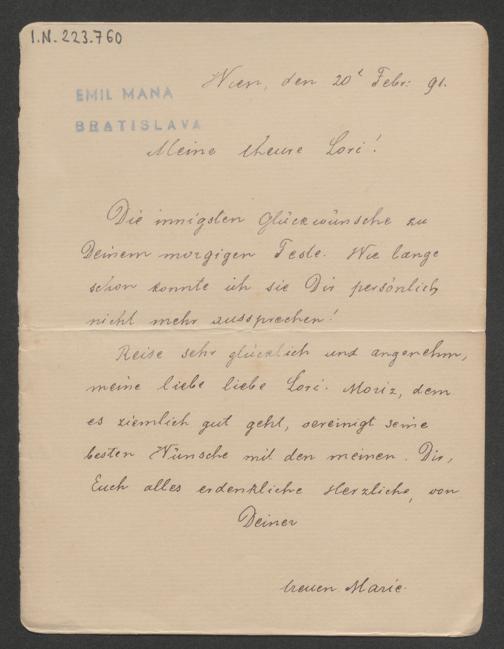 I.N. 223.760
Wien, den 20t Febr. 91.
EMIL MANA
BRATISLAVA
Meine theure Lori!
Die innigsten Glückwünsche zu
Deinem morgigen Feste. Wie lange
schon konnte ich sie Dir persönlich
nicht mehr aussprechen!
Reise sehr glücklich und angenehm,
meine liebe liebe Lori. Moriz, dem
es ziemlich gut geht, vereinigt seine
besten Wünsche mit den meinen. Dir,
Euch alles erdenkliche Herzliche, von
Deiner
treuen Marie.